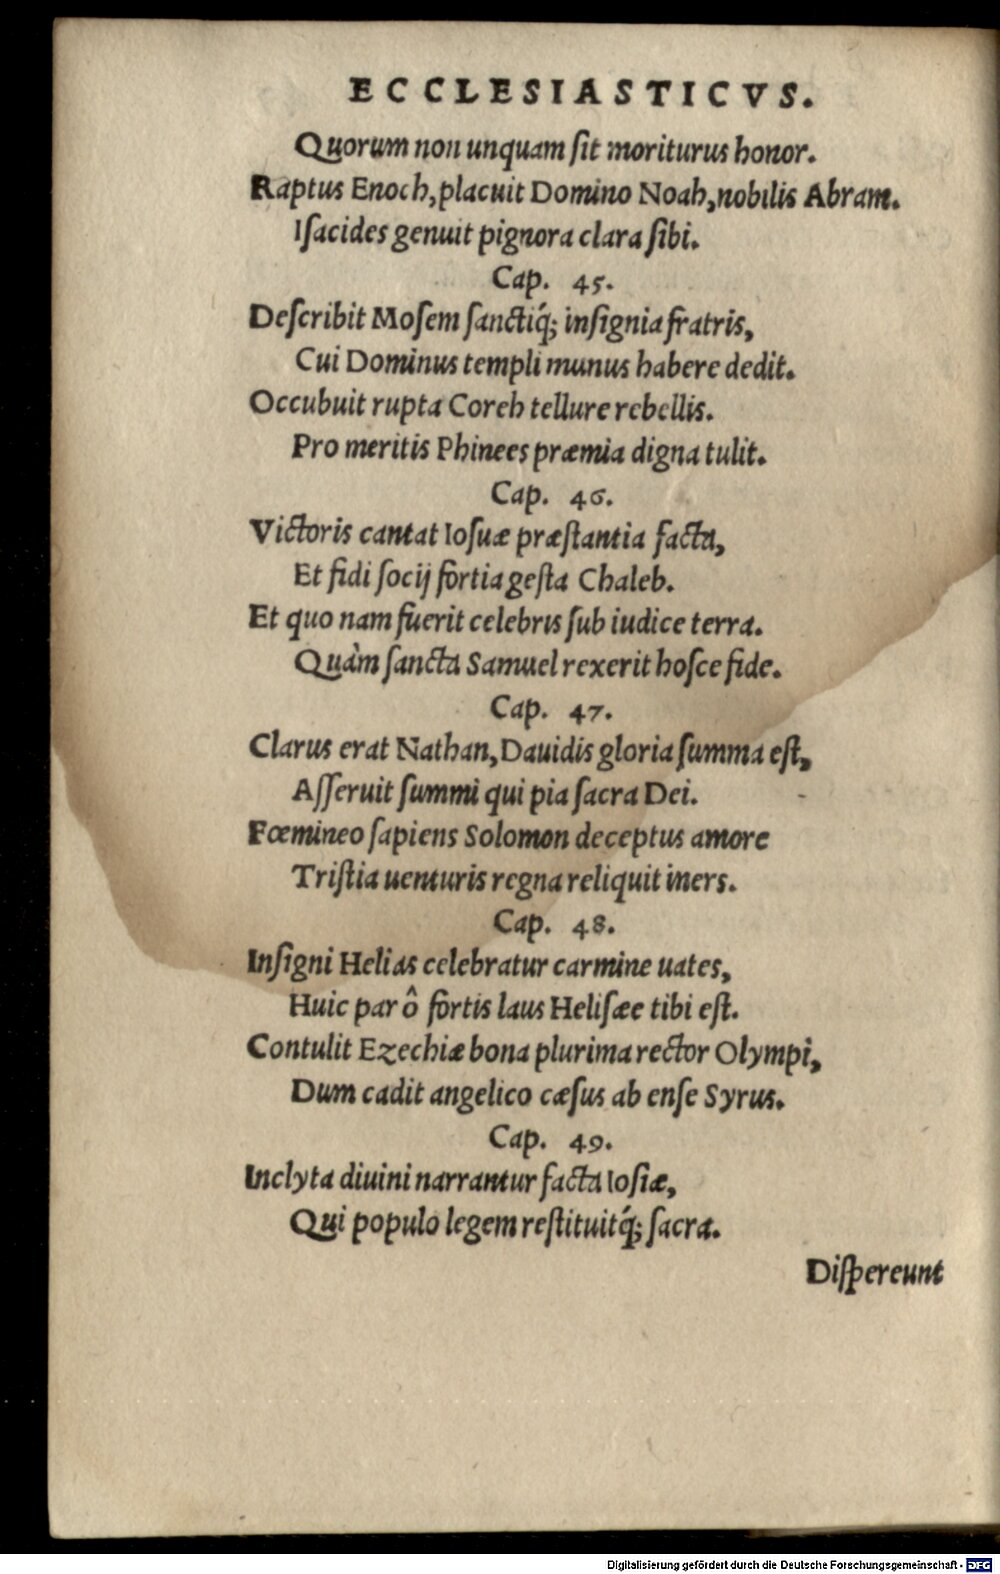 ECCLESIASTICVS.
Quorum non unquam ſit moriturus honor.
Raptus Enoch, placuit Domino Noah, nobilis Abram.
Iſacides genuit pignora clara ſibi.
Cap. 45.
Deſcribit Moſem ſanctiq́; inſignia fratris,
Cui Dominus templi munus habere dedit.
Occubuit rupta Coreh tellure rebellis.
Pro meritis Phinees præmia digna tulit.
Cap. 46.
Victoris cantat Ioſuæ præſtantia facta,
Et fidi ſocij fortia geſta Chaleb.
Et quo nam fuerit celebris ſub iudice terra.
Quàm ſancta Samuel rexerit hoſce fide.
Cap. 47.
Clarus erat Nathan, Dauidis gloria ſumma eſt,
Aſſeruit ſummi qui pia ſacra Dei.
Fœmineo ſapiens Solomon deceptus amore
Triſtia uenturis regna reliquit iners.
Cap. 48.
Inſigni Helias celebratur carmine uates,
Huic par ô fortis laus Heliſæe tibi eſt.
Contulit Ezechiæ bona plurima rector Olympi,
Dum cadit angelico cæſus ab enſe Syrus.
Cap. 49.
Inclyta diuini narrantur facta Ioſiæ,
Qui populo legem reſtituitq́; ſacra.
Diſpereunt
Digitalisierung gefördert durch die Deutsche Forschungsgemeinschaft - DFG